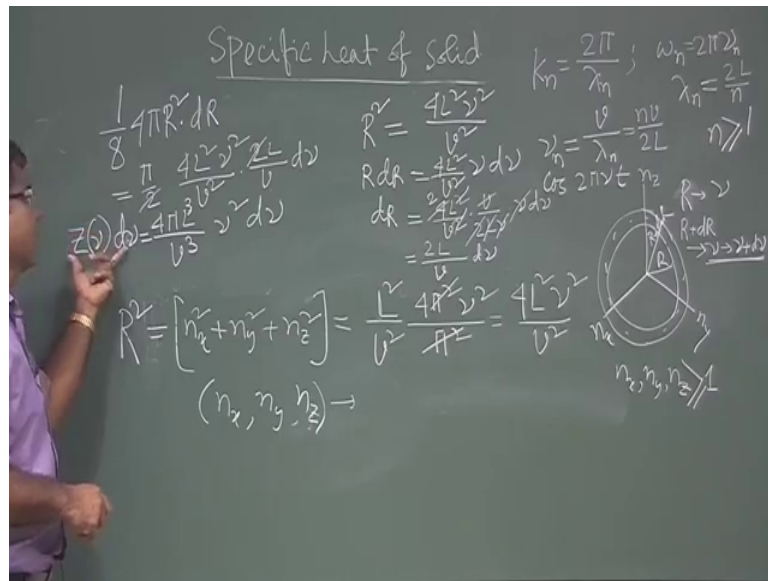 Specific heat of solid
K_n = 2π/λ_n ; ω_n = 2πν_n
λ_n = 2L/n
n ≥ 1
1/8 4πR² dR
= π/2 4L²ν²/v² · 2L/v dν
Z(ν) dν = 4πL³/v³ ν² dν
R² = 4L²ν²/v²
R dR = 4L²/v² ν dν
dR = 4L²/v² · v/2Lν · ν dν
= 2L/v dν
ν_n = v/λ_n = nv/2L
cos 2πνt
n_z
R → ν
R+dR
→ ν → ν+dν
R
n_x
n_y
n_x, n_y, n_z ≥ 1
R² = [n_x² + n_y² + n_z²] = L²/v² 4π²ν²/π² = 4L²ν²/v²
(n_x, n_y, n_z) →